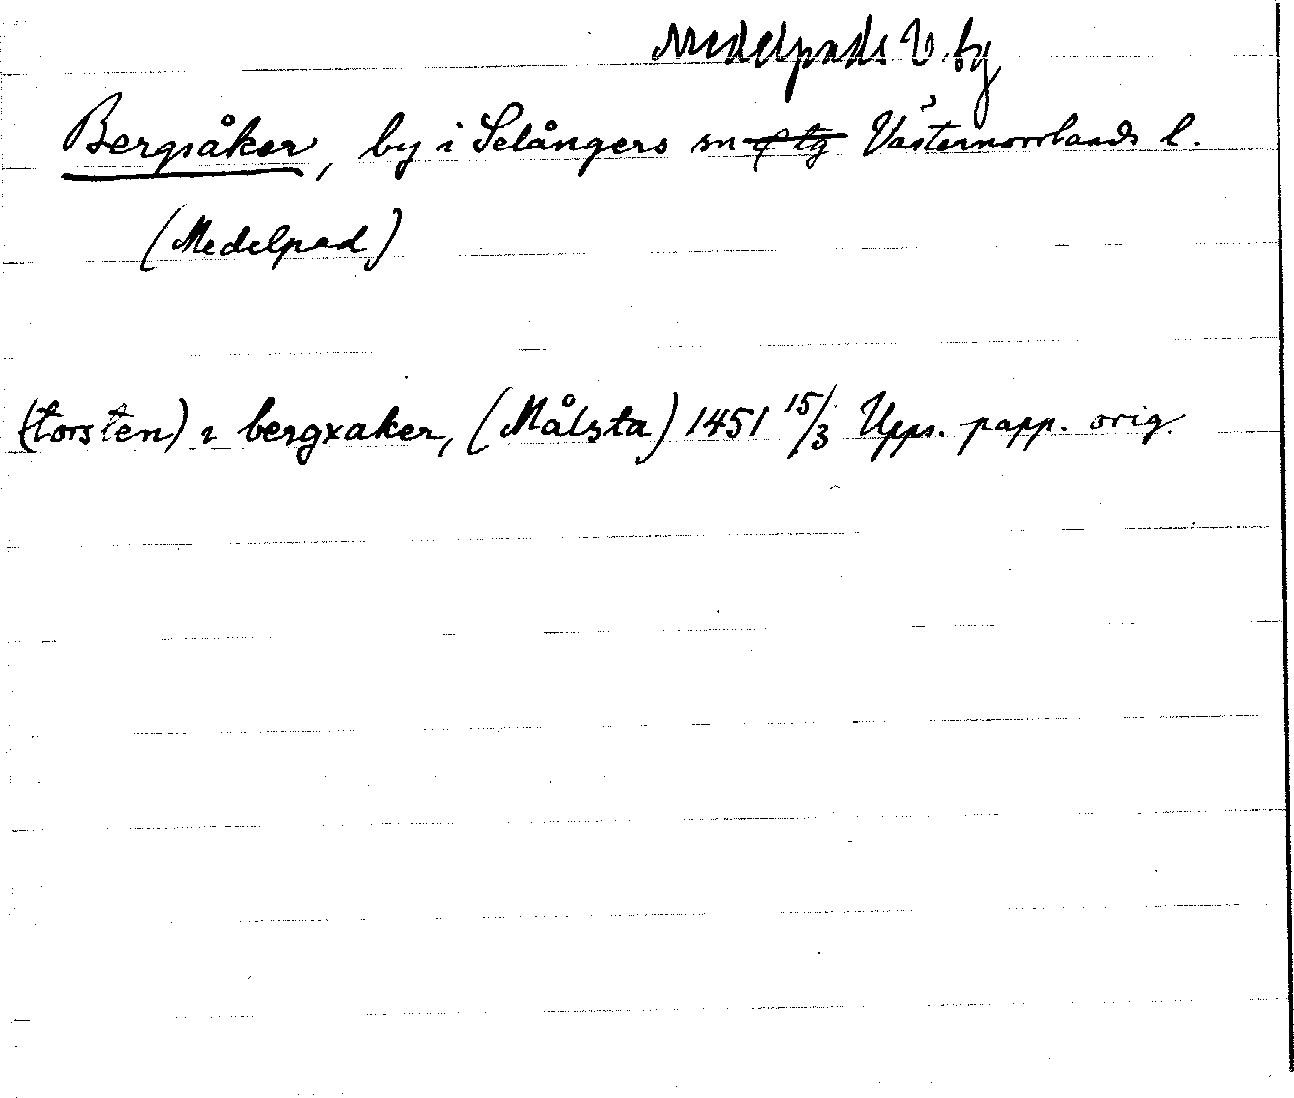 Medelpads V. fg
Bergsåker, by i Selångers sn & tg Västernorrlands l.
(Medelpad)
(torsten) ı bergxaker, (Målsta) 1451 15/3 Upps. papp. orig.